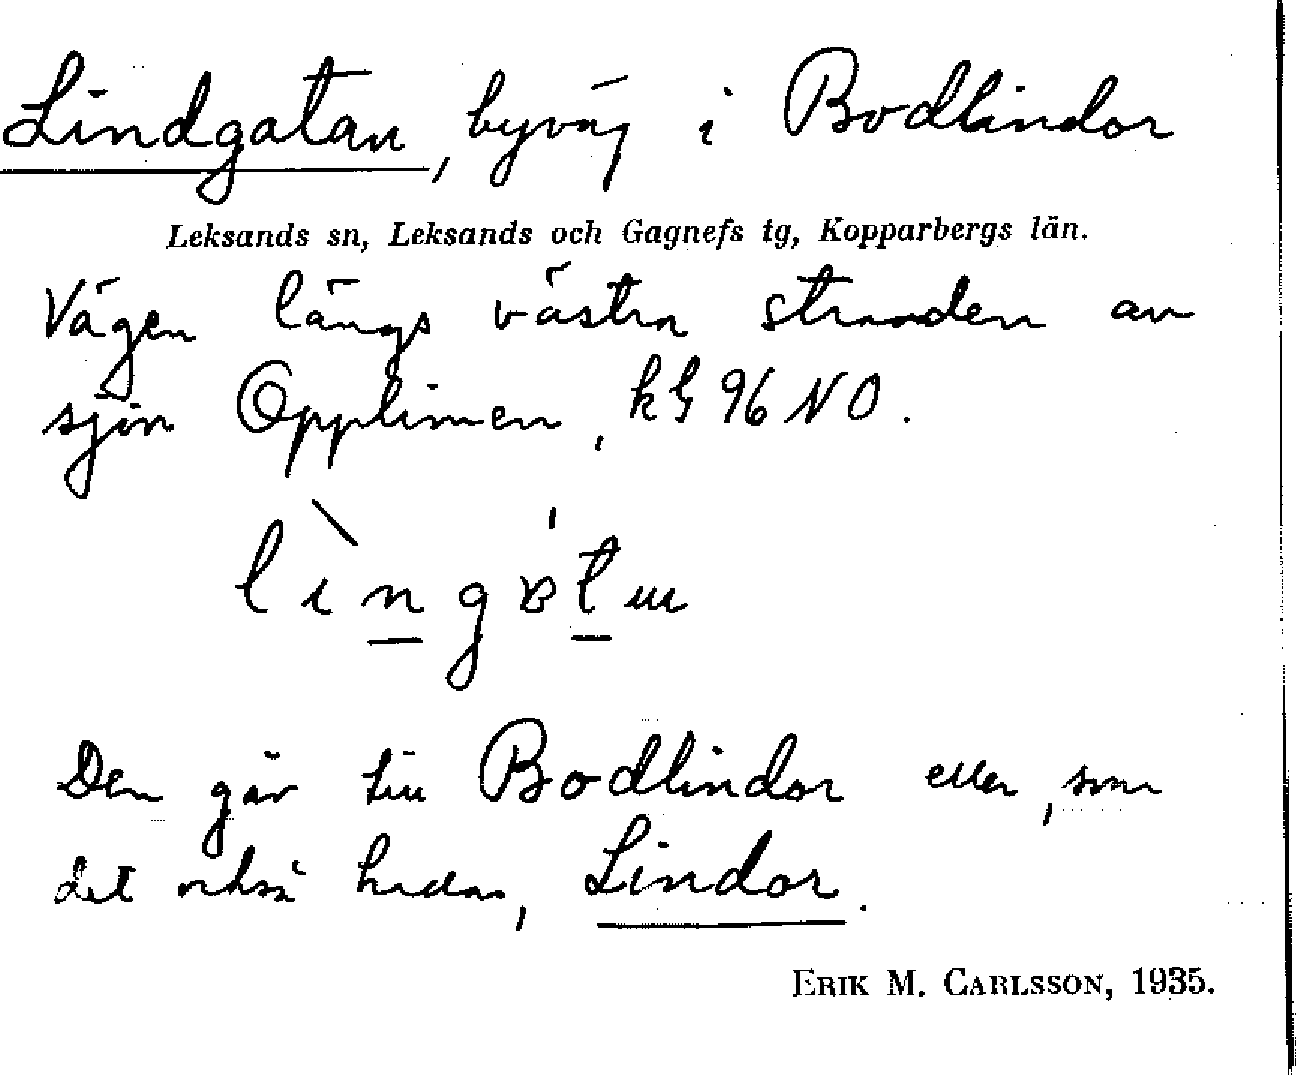 Lindgatan, byväg i Bodlindor
Leksands sn, Leksands och Gagnefs tg, Kopparbergs län.
Vägen längs västra stranden av
sjön Opplimen, kbl 96 NO.
Den går till Bodlindor eller, som
det också kallas, Lindor.
ERIK M. CARLSSON, 1935.